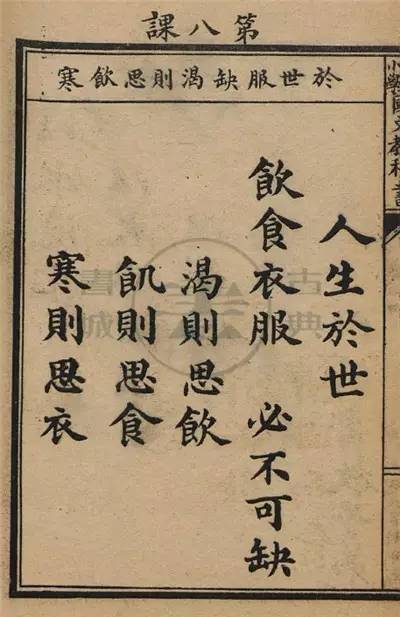 第八課
於世服缺渴則思飲寒
小學國文教科書
人生於世
飲食衣服 必不可缺
渴則思飲
飢則思食
寒則思衣
古典書城